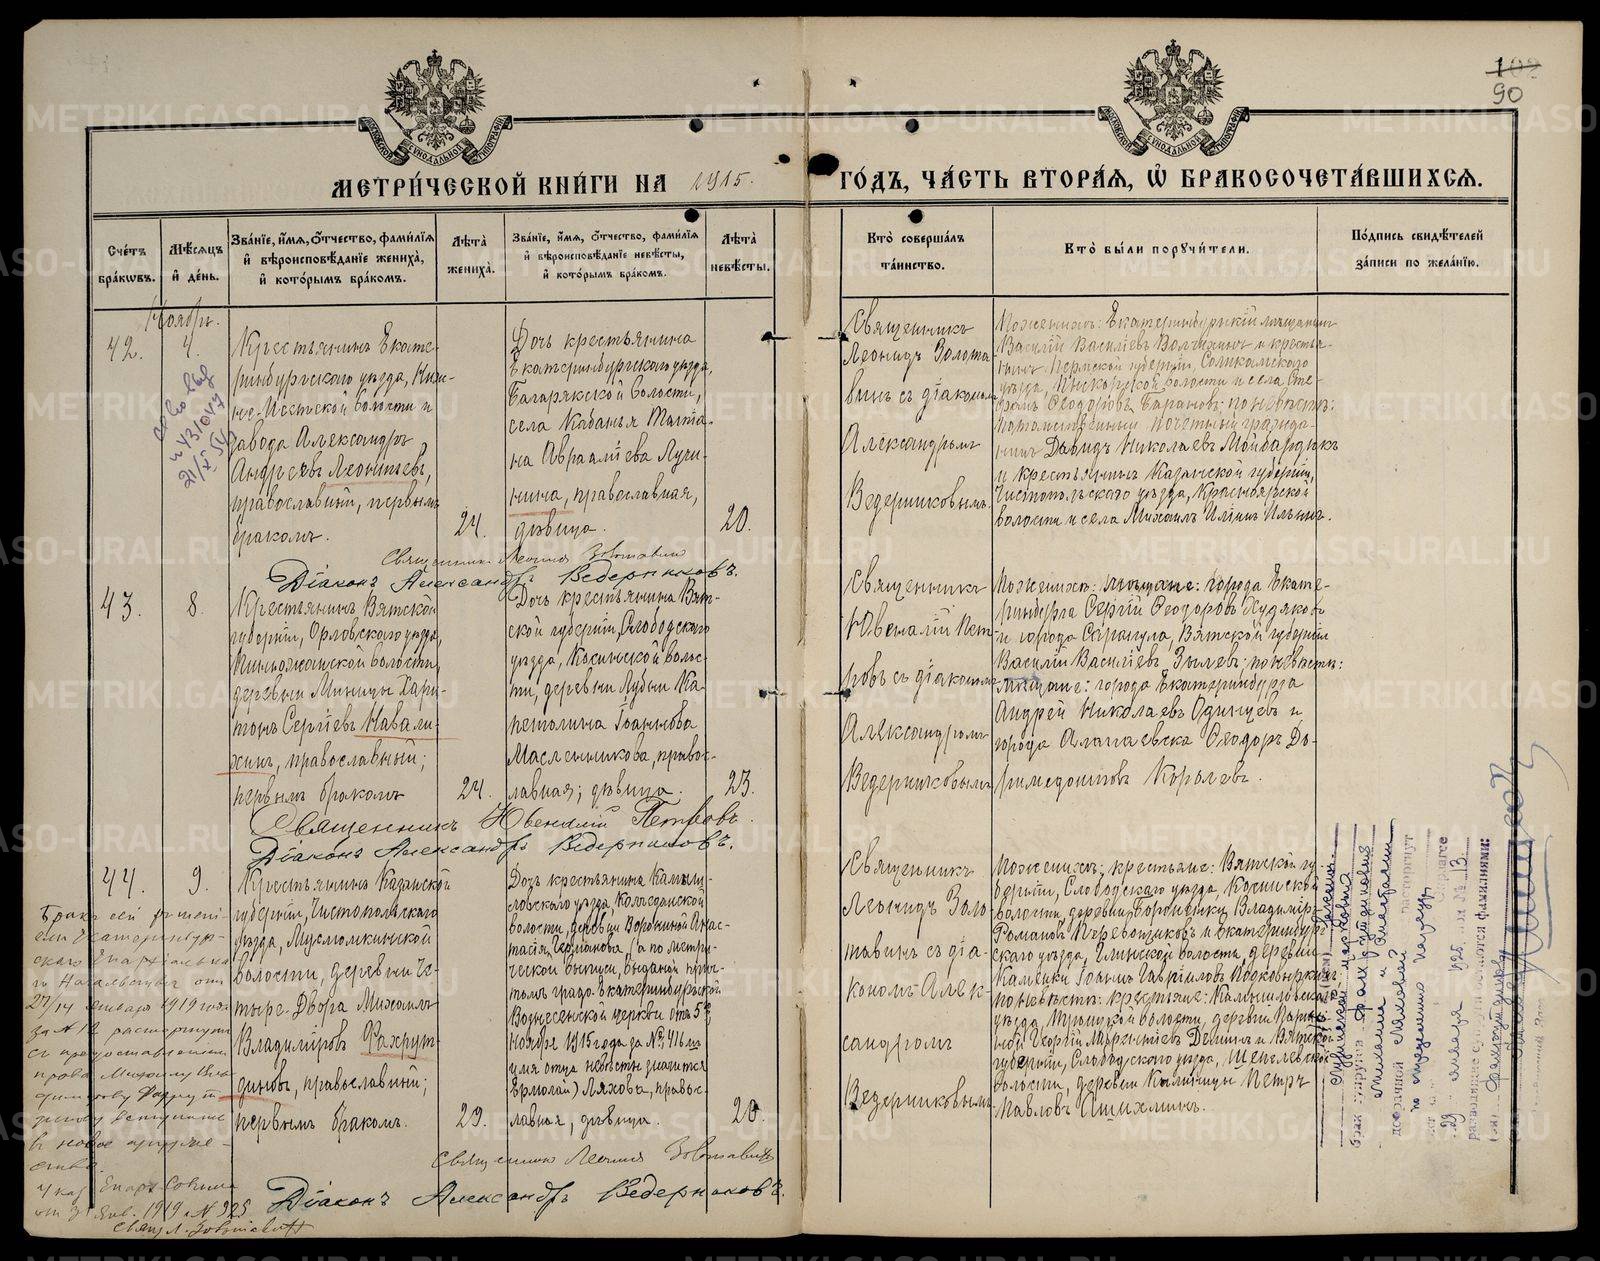 102
90
МЕТРИ́ЧЕСКОЙ КНИ́ГИ НА 1915.
ГО́ДЪ, ЧА́СТЬ ВТОРА́Я, Ѡ БРАКОСОЧЕТА́ВШИХСЯ.
Сче́тъ бра́кѡвъ.
Мѣ́сяцъ и҆ де́нь.
Зва́нїе, и҆́мя, ѻ҆́тчество, фами́лїя и҆ вѣроисповѣ́данїе жениха̀, и҆ кото́рымъ бра́комъ.
Лѣта̀ жениха̀.
Зва́нїе, и҆́мя, ѻ҆́тчество, фами́лїя и҆ вѣроисповѣ́данїе невѣ́сты, и҆ кото́рымъ бра́комъ.
Лѣта̀ невѣ́сты.
Кто̀ соверша́лъ та́инство.
Кто̀ бы́ли порꙋчи́тели.
По́дпись свидѣ́телей за́писи по жела́нїю.
Ноябрь.
42.
4.
Крестьянинъ Екате-
ринбургскаго уѣзда, Ниж-
не-Исетской волости и
завода Александръ
Андреевъ Леонтьевъ,
православный, первымъ
бракомъ.
24.
Дочь крестьянина
Екатеринбургскаго уѣзда,
Багарякской волости,
села Кабанья Татiа-
на Авраамiева Лучи-
нина, православная,
дѣвица.
20.
Священникъ
Леонидъ Золота-
винъ съ дiакономъ
Александромъ
Ведерниковымъ.
По женихѣ: Екатеринбургскiй мѣщанинъ
Василiй Василiевъ и крестья-
нинъ Пермской губернiи, Соликамскаго
уѣзда, Пыскорской волости и села Сте-
фанъ Ѳеодоровъ Барановъ; по невѣстѣ:
Потомственный почетный гражда-
нинъ Давидъ Николаевъ
и крестьянинъ Казанской губернiи,
Чистопольскаго уѣзда, Красноярской
волости и села Михаилъ Ильинъ Ильинъ.
Священникъ Леонидъ Золотавинъ
Дiаконъ Александръ Ведерниковъ.
43.
8.
Крестьянинъ Вятской
губернiи, Орловскаго уѣзда,
волости,
деревни Миничи Хари-
тонъ Сергiевъ Навали-
хинъ, православный;
первымъ бракомъ
24.
Дочь крестьянина Вят-
ской губернiи, Слободского
уѣзда, Косинской волос-
ти, деревни Зубни Ка-
питолина Iоаннова
Масленникова, правос-
лавная; дѣвица.
23.
Священникъ
Ювеналiй Пет-
ровъ съ дiакономъ
Александромъ
Ведерниковымъ
По женихѣ: мѣщане: города Екате-
ринбурга Сергiй Ѳеодоровъ Худяковъ
и города Сарапула, Вятской губернiи
Василiй Василiевъ Зылевъ; по невѣстѣ:
мѣщане: города Екатеринбурга
Андрей Николаевъ Одинцевъ и
города Алапаевска Ѳеодоръ До-
римедонтовъ Королевъ.
Священникъ Ювеналiй Петровъ
Дiаконъ Александръ Ведерниковъ.
44.
9.
Крестьянинъ Казанской
губернiи, Чистопольскаго
уѣзда, Муслюмкинской
волости, деревни Че-
тыре Двора Михаилъ
Владимiровъ Фахрут-
диновъ, православный;
первымъ бракомъ.
29.
Дочь крестьянина Камыш-
ловскаго уѣзда, Колчеданской
волости, деревни Ворониной Анас-
тасiя Германова (а по метри-
ческой выписи, выданной прич-
томъ градо-Екатеринбургской
Вознесенской церкви отъ 5го
ноября 1915 года за № 416мъ
имя отца невѣсты значится
Ермолай) Ляхова, правос-
лавная, дѣвица.
20.
Священникъ
Леонидъ Золо-
тавинъ съ дiа-
кономъ Алек-
сандромъ
Ведерниковымъ
По женихѣ: крестьяне: Вятской гу-
бернiи, Слободскаго уѣзда, Косинской
волости, деревни Владимiръ
Романовъ Перевощиковъ и Екатеринбург-
скаго уѣзда, Глинской волости, деревни
Каменки Iоаннъ Гаврiиловъ
по невѣстѣ: крестьяне: Камышловскаго
уѣзда, волости, деревни
Георгiй Деминъ и Вятской
губернiи, Слободскаго уѣзда,
волости, деревни Калиничи Петръ
Павловъ Ашихминъ.
Священникъ Леонидъ Золотавинъ
Дiаконъ Александръ Ведерниковъ.
Бракъ сей рѣшені-
емъ Екатеринбург-
скаго Епархiальна-
го Начальства отъ
27/14 января 1919 года
за № 12 расторгнутъ
съ предоставленiемъ
права Михаилу Вла-
димiрову Фахрут-
динову вступить
въ новое супруже-
ство.
Указъ Епарх. Совѣта
от 31 янв. 1919 г. № 925
Свящ. Л. Золотавинъ
21/XI 54
расторгнут
METRIKI.GASO-URAL.RU